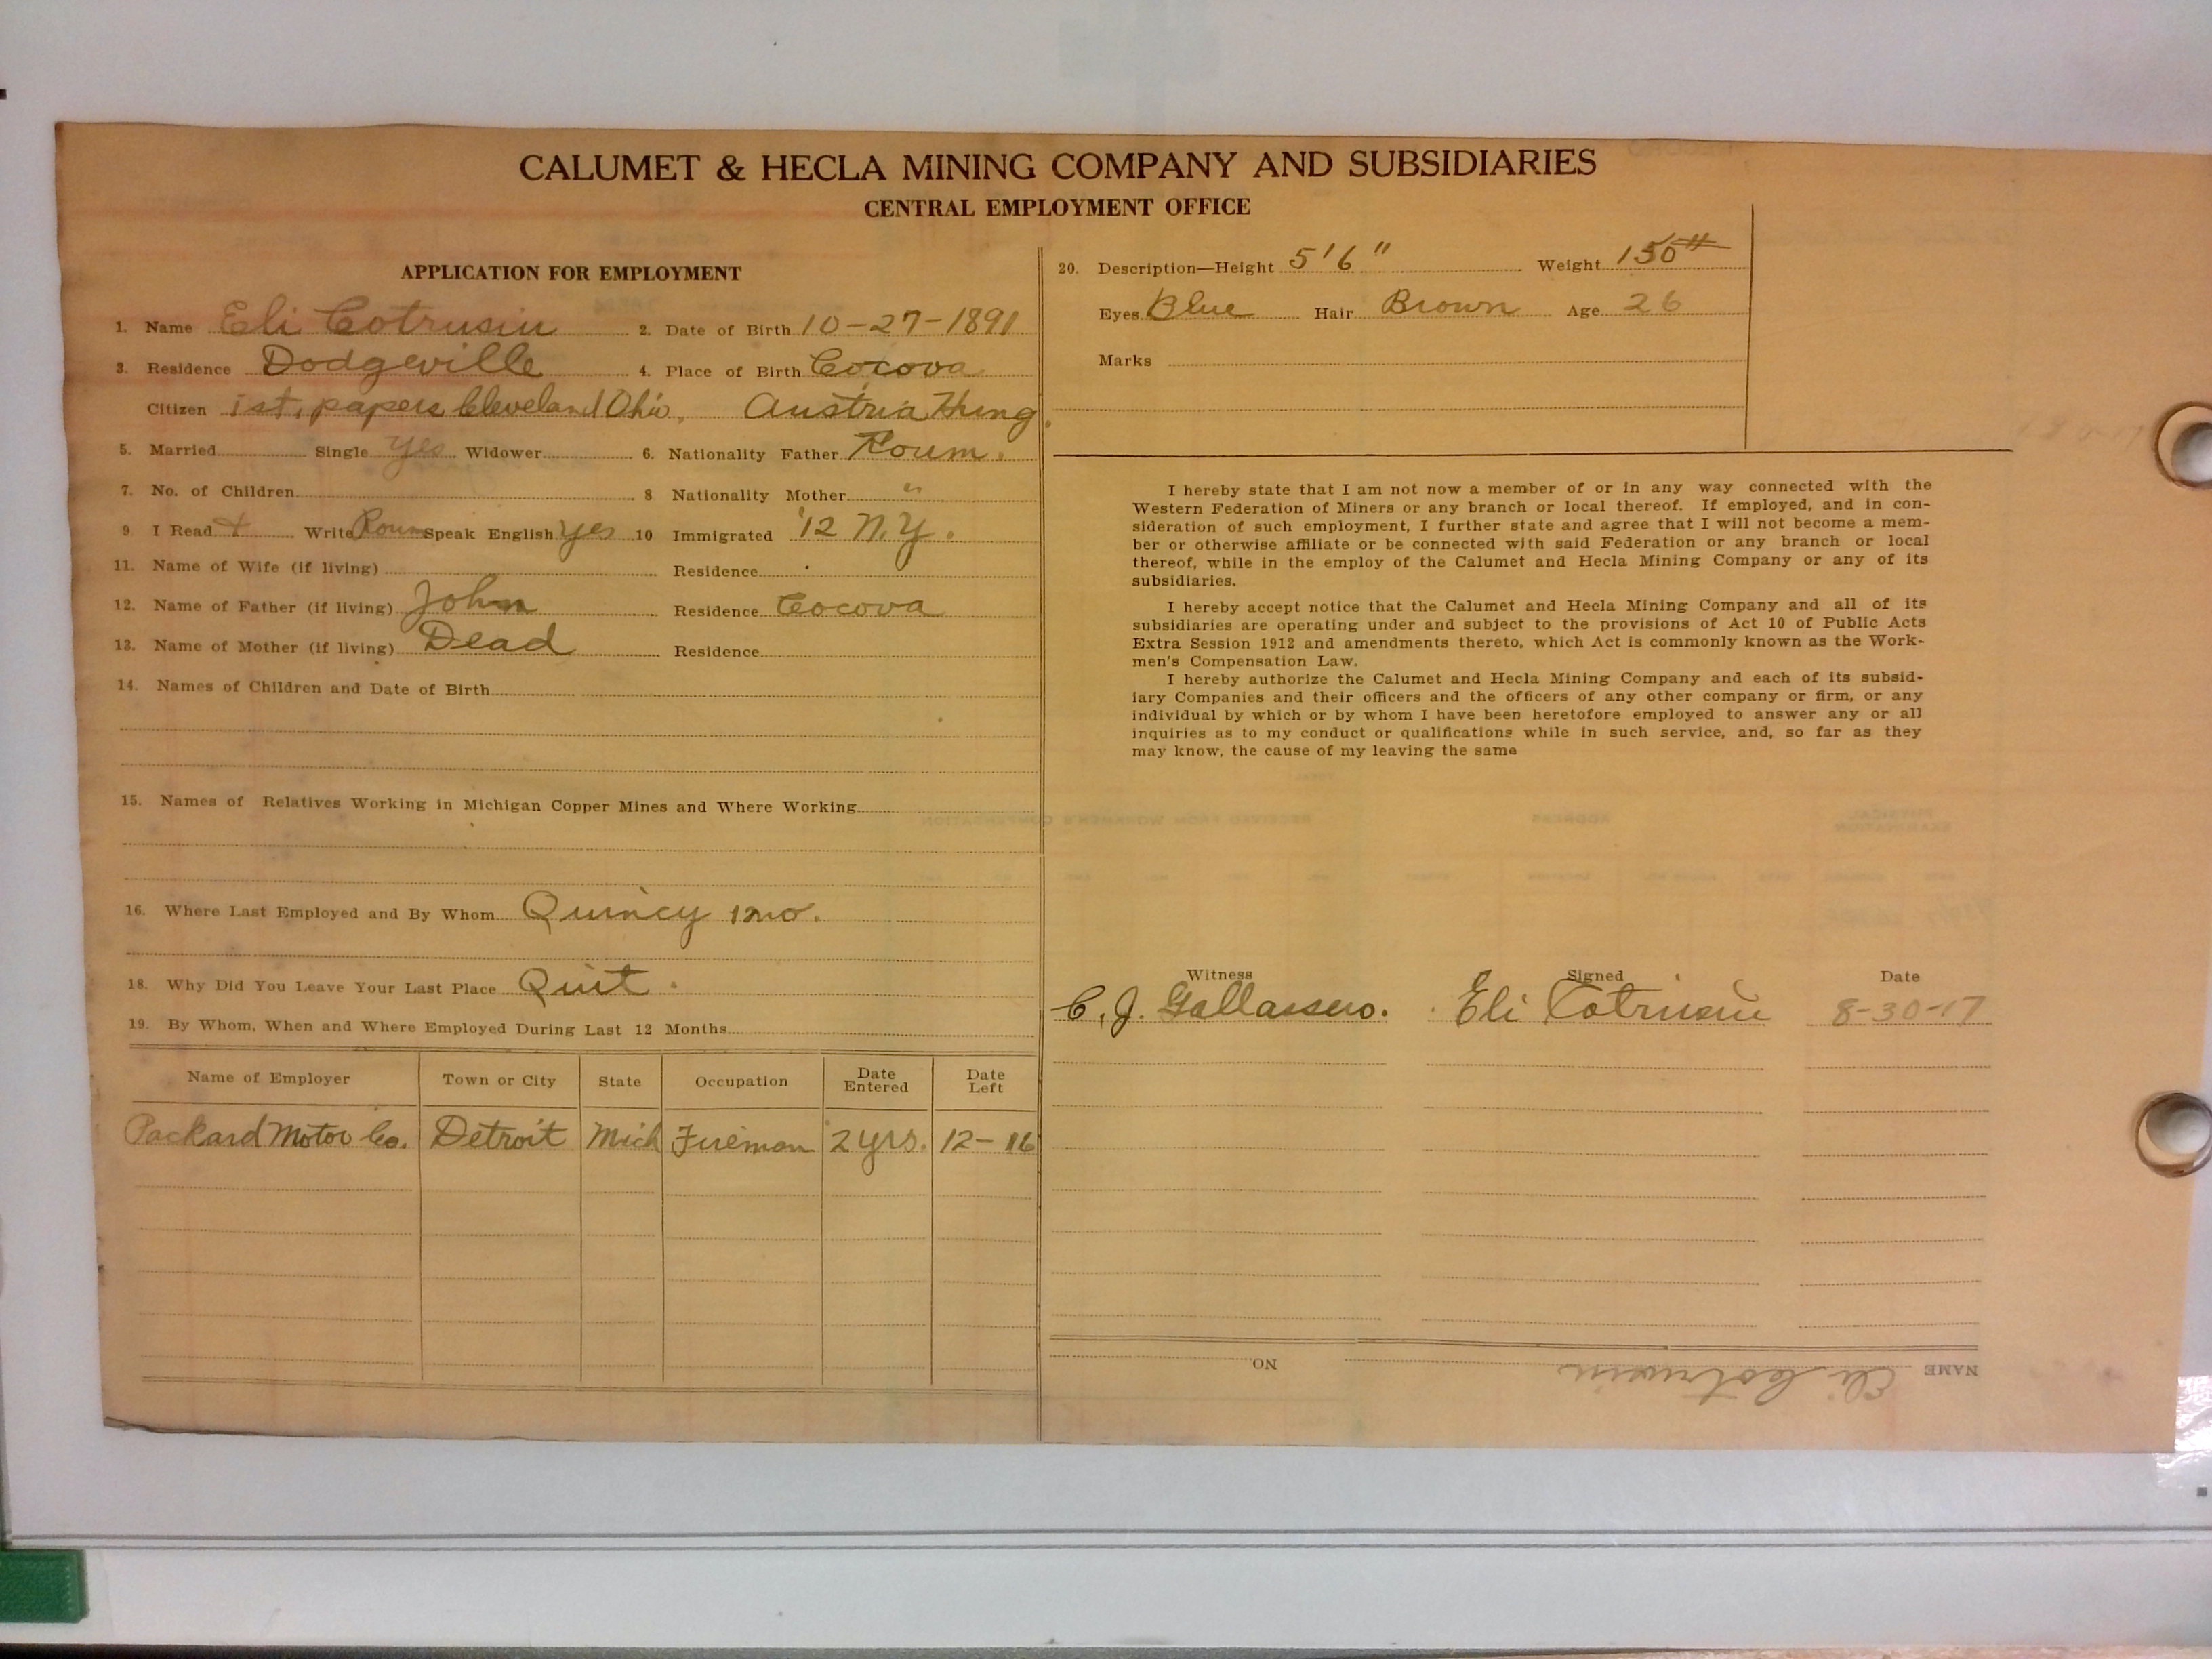 CALUMET & HECLA MINING COMPANY AND SUBSIDIARIES
CENTRAL EMPLOYMENT OFFICE
APPLICATION FOR EMPLOYMENT
1. Name Eli Cotrusin 2. Date of Birth 10-27-1891
3. Residence Dodgeville 4. Place of Birth Cocova
Citizen 1st, papers Cleveland Ohio, Austria Hung.
5. Married Single yes Widower 6. Nationality Father Roum.
7. No. of Children 8 Nationality Mother "
9 I Read + Write Roum Speak English yes 10 Immigrated '12 N.Y.
11. Name of Wife (if living) Residence
12. Name of Father (if living) John Residence Cocova
13. Name of Mother (if living) Dead Residence
14. Names of Children and Date of Birth
15. Names of Relatives Working in Michigan Copper Mines and Where Working
16. Where Last Employed and By Whom Quincy 1 mo.
18. Why Did You Leave Your Last Place Quit.
19. By Whom, When and Where Employed During Last 12 Months
Name of Employer Town or City State Occupation Date Entered Date Left
Packard Motor Co. Detroit Mich Fireman 2 yrs. 12-16
20. Description—Height 5'6" Weight 150#
Eyes Blue Hair Brown Age 26
Marks
I hereby state that I am not now a member of or in any way connected with the
Western Federation of Miners or any branch or local thereof. If employed, and in con-
sideration of such employment, I further state and agree that I will not become a mem-
ber or otherwise affiliate or be connected with said Federation or any branch or local
thereof, while in the employ of the Calumet and Hecla Mining Company or any of its
subsidiaries.
I hereby accept notice that the Calumet and Hecla Mining Company and all of its
subsidiaries are operating under and subject to the provisions of Act 10 of Public Acts
Extra Session 1912 and amendments thereto, which Act is commonly known as the Work-
men's Compensation Law.
I hereby authorize the Calumet and Hecla Mining Company and each of its subsid-
iary Companies and their officers and the officers of any other company or firm, or any
individual by which or by whom I have been heretofore employed to answer any or all
inquiries as to my conduct or qualifications while in such service, and, so far as they
may know, the cause of my leaving the same
Witness Signed Date
C. J. Gallassero. Eli Cotrusin 8-30-17
NAME Eli Cotrusin NO